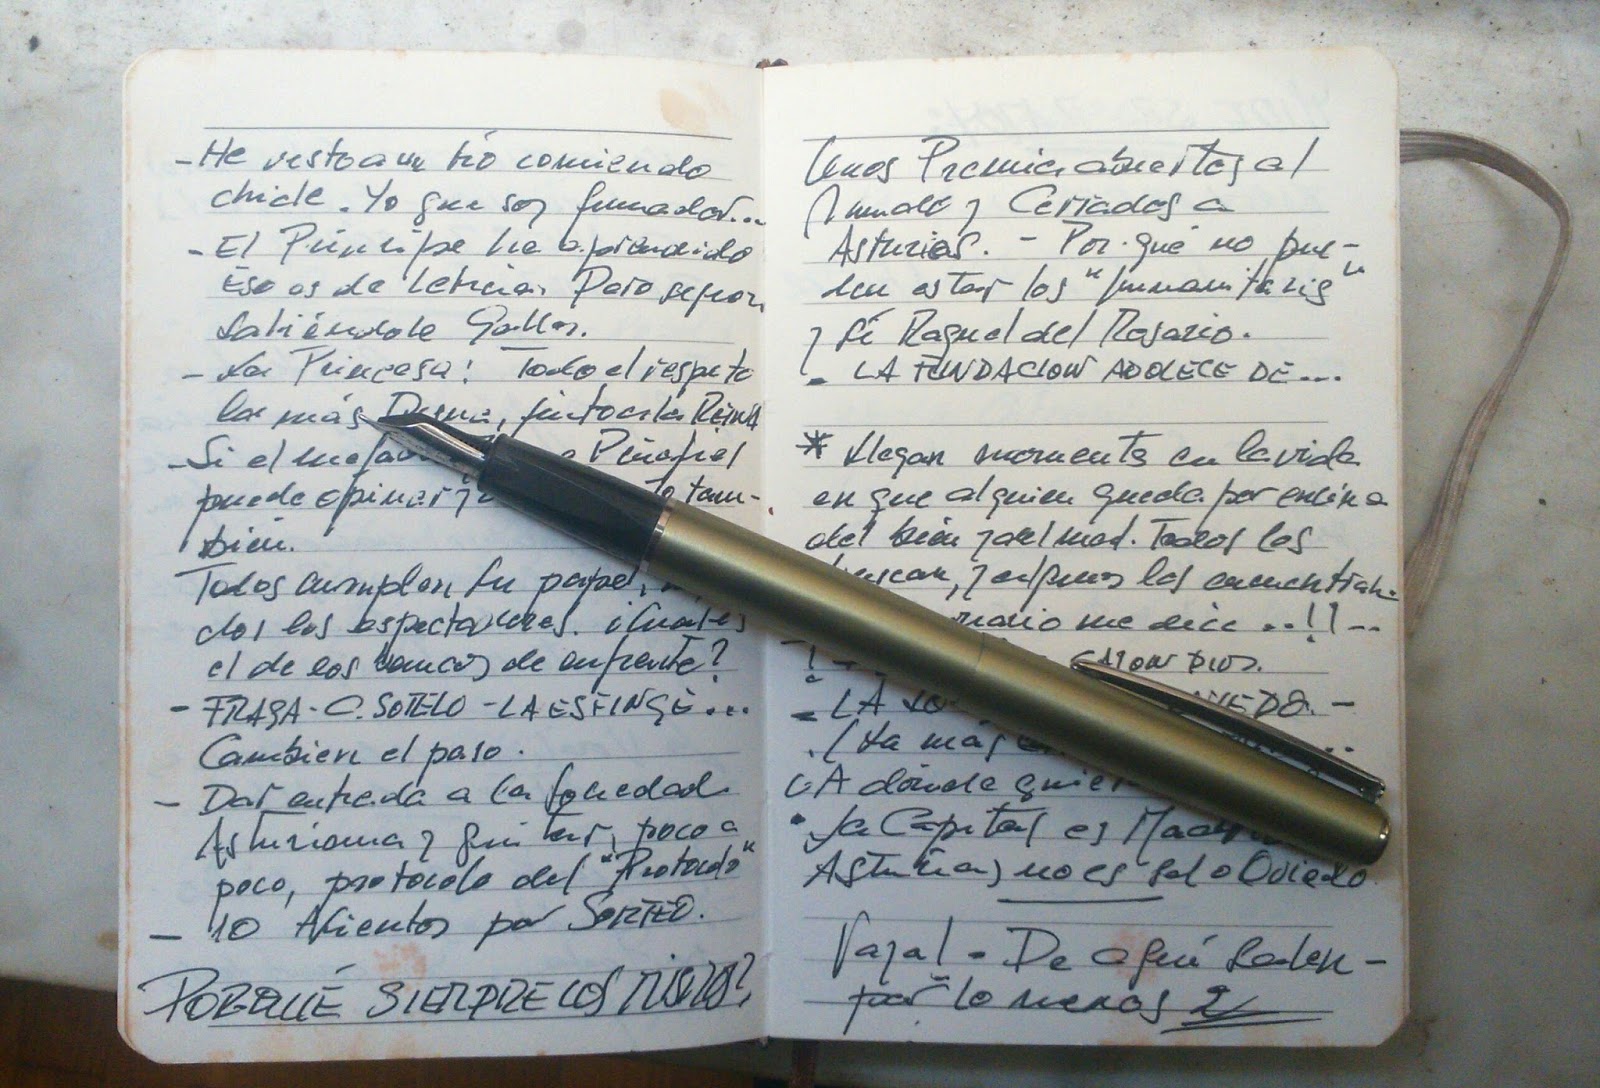 - He visto a un tío comiendo
chicle. Yo que soy fumador...
- El Príncipe ha aprendido
Eso es de Leticia. Pero siguen
saliéndole Gallos.
- La Princesa! Todo el respeto
la más Digna, junto a la REINA
- Si el mejor Peñafiel
puede opinar y tam-
bién.
Todos cumplen su papel,
dos los espectadores. ¿Cuál es
el de los bancos de enfrente?
- FRAGA - C. SOTELO - LA ESFINGE...
Cambien el paso.
- Dar entrada a la sociedad
Asturiana y quitar, poco a
poco, protocolo del "Protocolo"
- 10 Asientos por SORTEO.
PORQUÉ SIEMPRE LOS MISMOS?
Unos Premios abiertos al
mundo y Cerrados a
Asturias. - Por qué no pue-
den estar los "humanitaris"
y sí Raquel del Rosario.
- LA FUNDACION ADOLECE DE...
* Llegan momentos en la vida
en que alguien queda por encima
del bien y del mal. Todos los
buscan, y algunos los encuentran.
me dice ..!! ..
CON DIOS.
- LA
. (La más
¿A dónde
• La Capital es
Asturias) no es solo Oviedo.
Vaya! - De aquí salen -
por lo menos 2